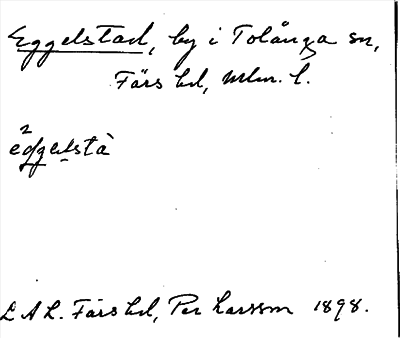 Eggelstad, by i Tolånga sn,
Färs hd, Mlm. l.
L A L. Färs hd, Per Larsson 1898.